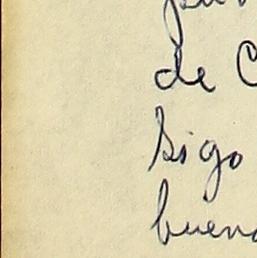 de C
sigo
buena